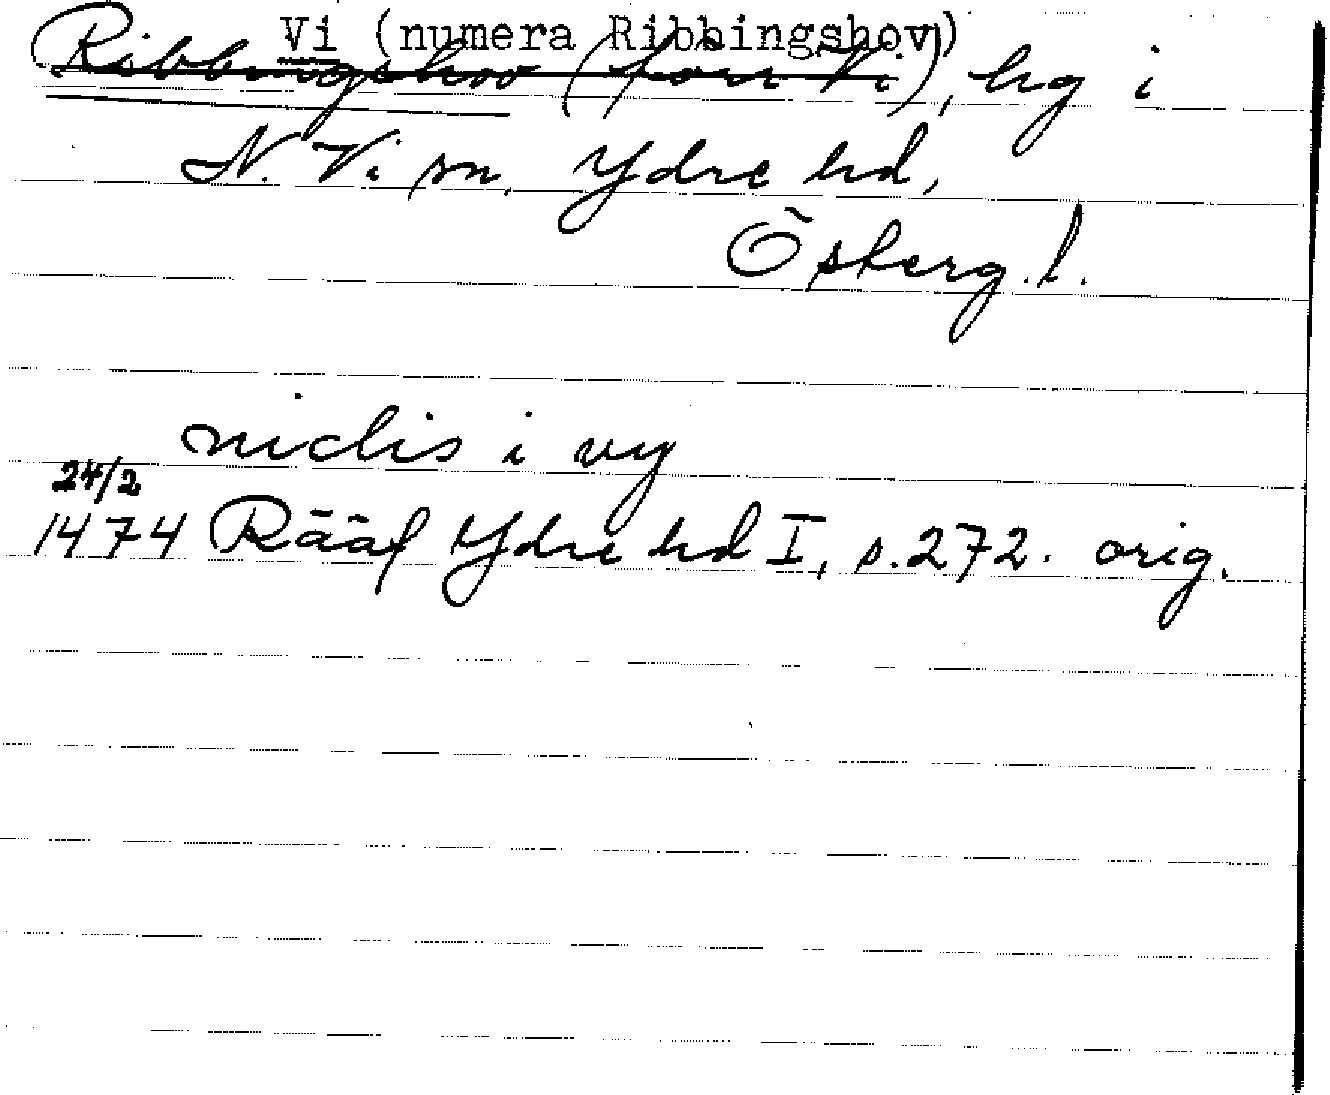 Vi (numera Ribbingshov)
Ribbingshov (förr Vi), hg i
N. Vi sn, Ydre hd,
Österg. l.
niclis i vy
24/2
1474 Rääf Ydre hd I, s. 272. orig.